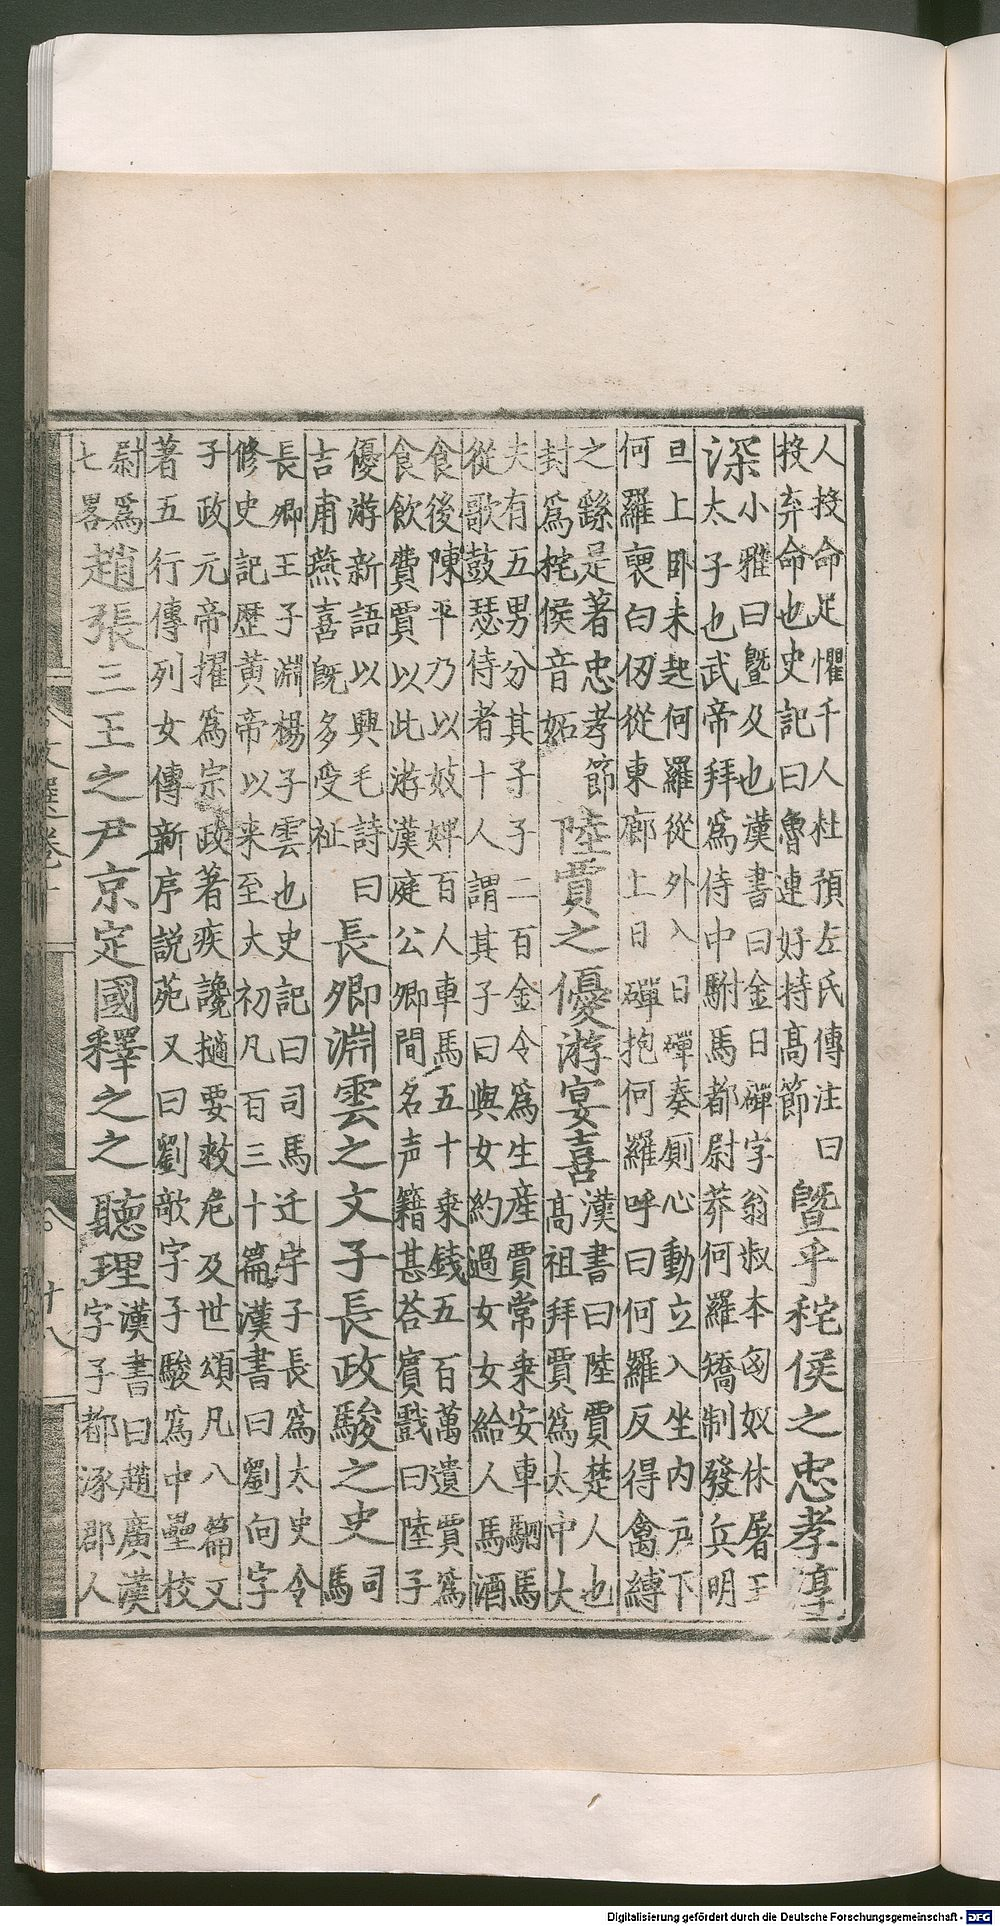 人投命足懼千人杜預左氏傳注曰
投弃命也史記曰魯連好持髙節
暨乎秺侯之忠孝淳
深
小雅曰曁及也漢書曰金日磾字翁叔本匈奴休屠王
太子也武帝拜為侍中駙馬都尉莽何羅矯制發兵明
旦上卧未起何羅從外入日磾奏厠心動立入坐内戸下
何羅褏白刃從東廂上日磾抱何羅呼曰何羅反得禽縛
之繇是著忠孝節
封為秺侯音妬
陸賈之優游宴喜
漢書曰陸賈楚人也
高祖拜賈為太中大
夫有五男分其子子二百金令為生産賈常乗安車駟馬
從歌鼓瑟侍者十人謂其子曰與女約過女女給人馬酒
食後陳平乃以妓婢百人車馬五十乗錢五百萬遺賈為
食飲費賈以此游漢庭公卿間名声籍甚荅賓戲曰陸子
優游新語以興毛詩曰
吉甫燕喜旣多受祉
長卿淵雲之文子長政駿之史
司
馬
長卿王子淵楊子雲也史記曰司馬迁字子長為太史令
修史記歷黄帝以来至太初凡百三十篇漢書曰劉向字
子政元帝擢為宗政著疾讒擿要救危及世頌凡八篇又
著五行傳列女傳新序説苑又曰劉歆字子駿為中壘校
尉為
七畧
趙張三王之尹京定國釋之之聽理
漢書曰趙廣漢
字子都涿郡人
文選卷十
十八
Digitalisierung gefördert durch die Deutsche Forschungsgemeinschaft - DFG